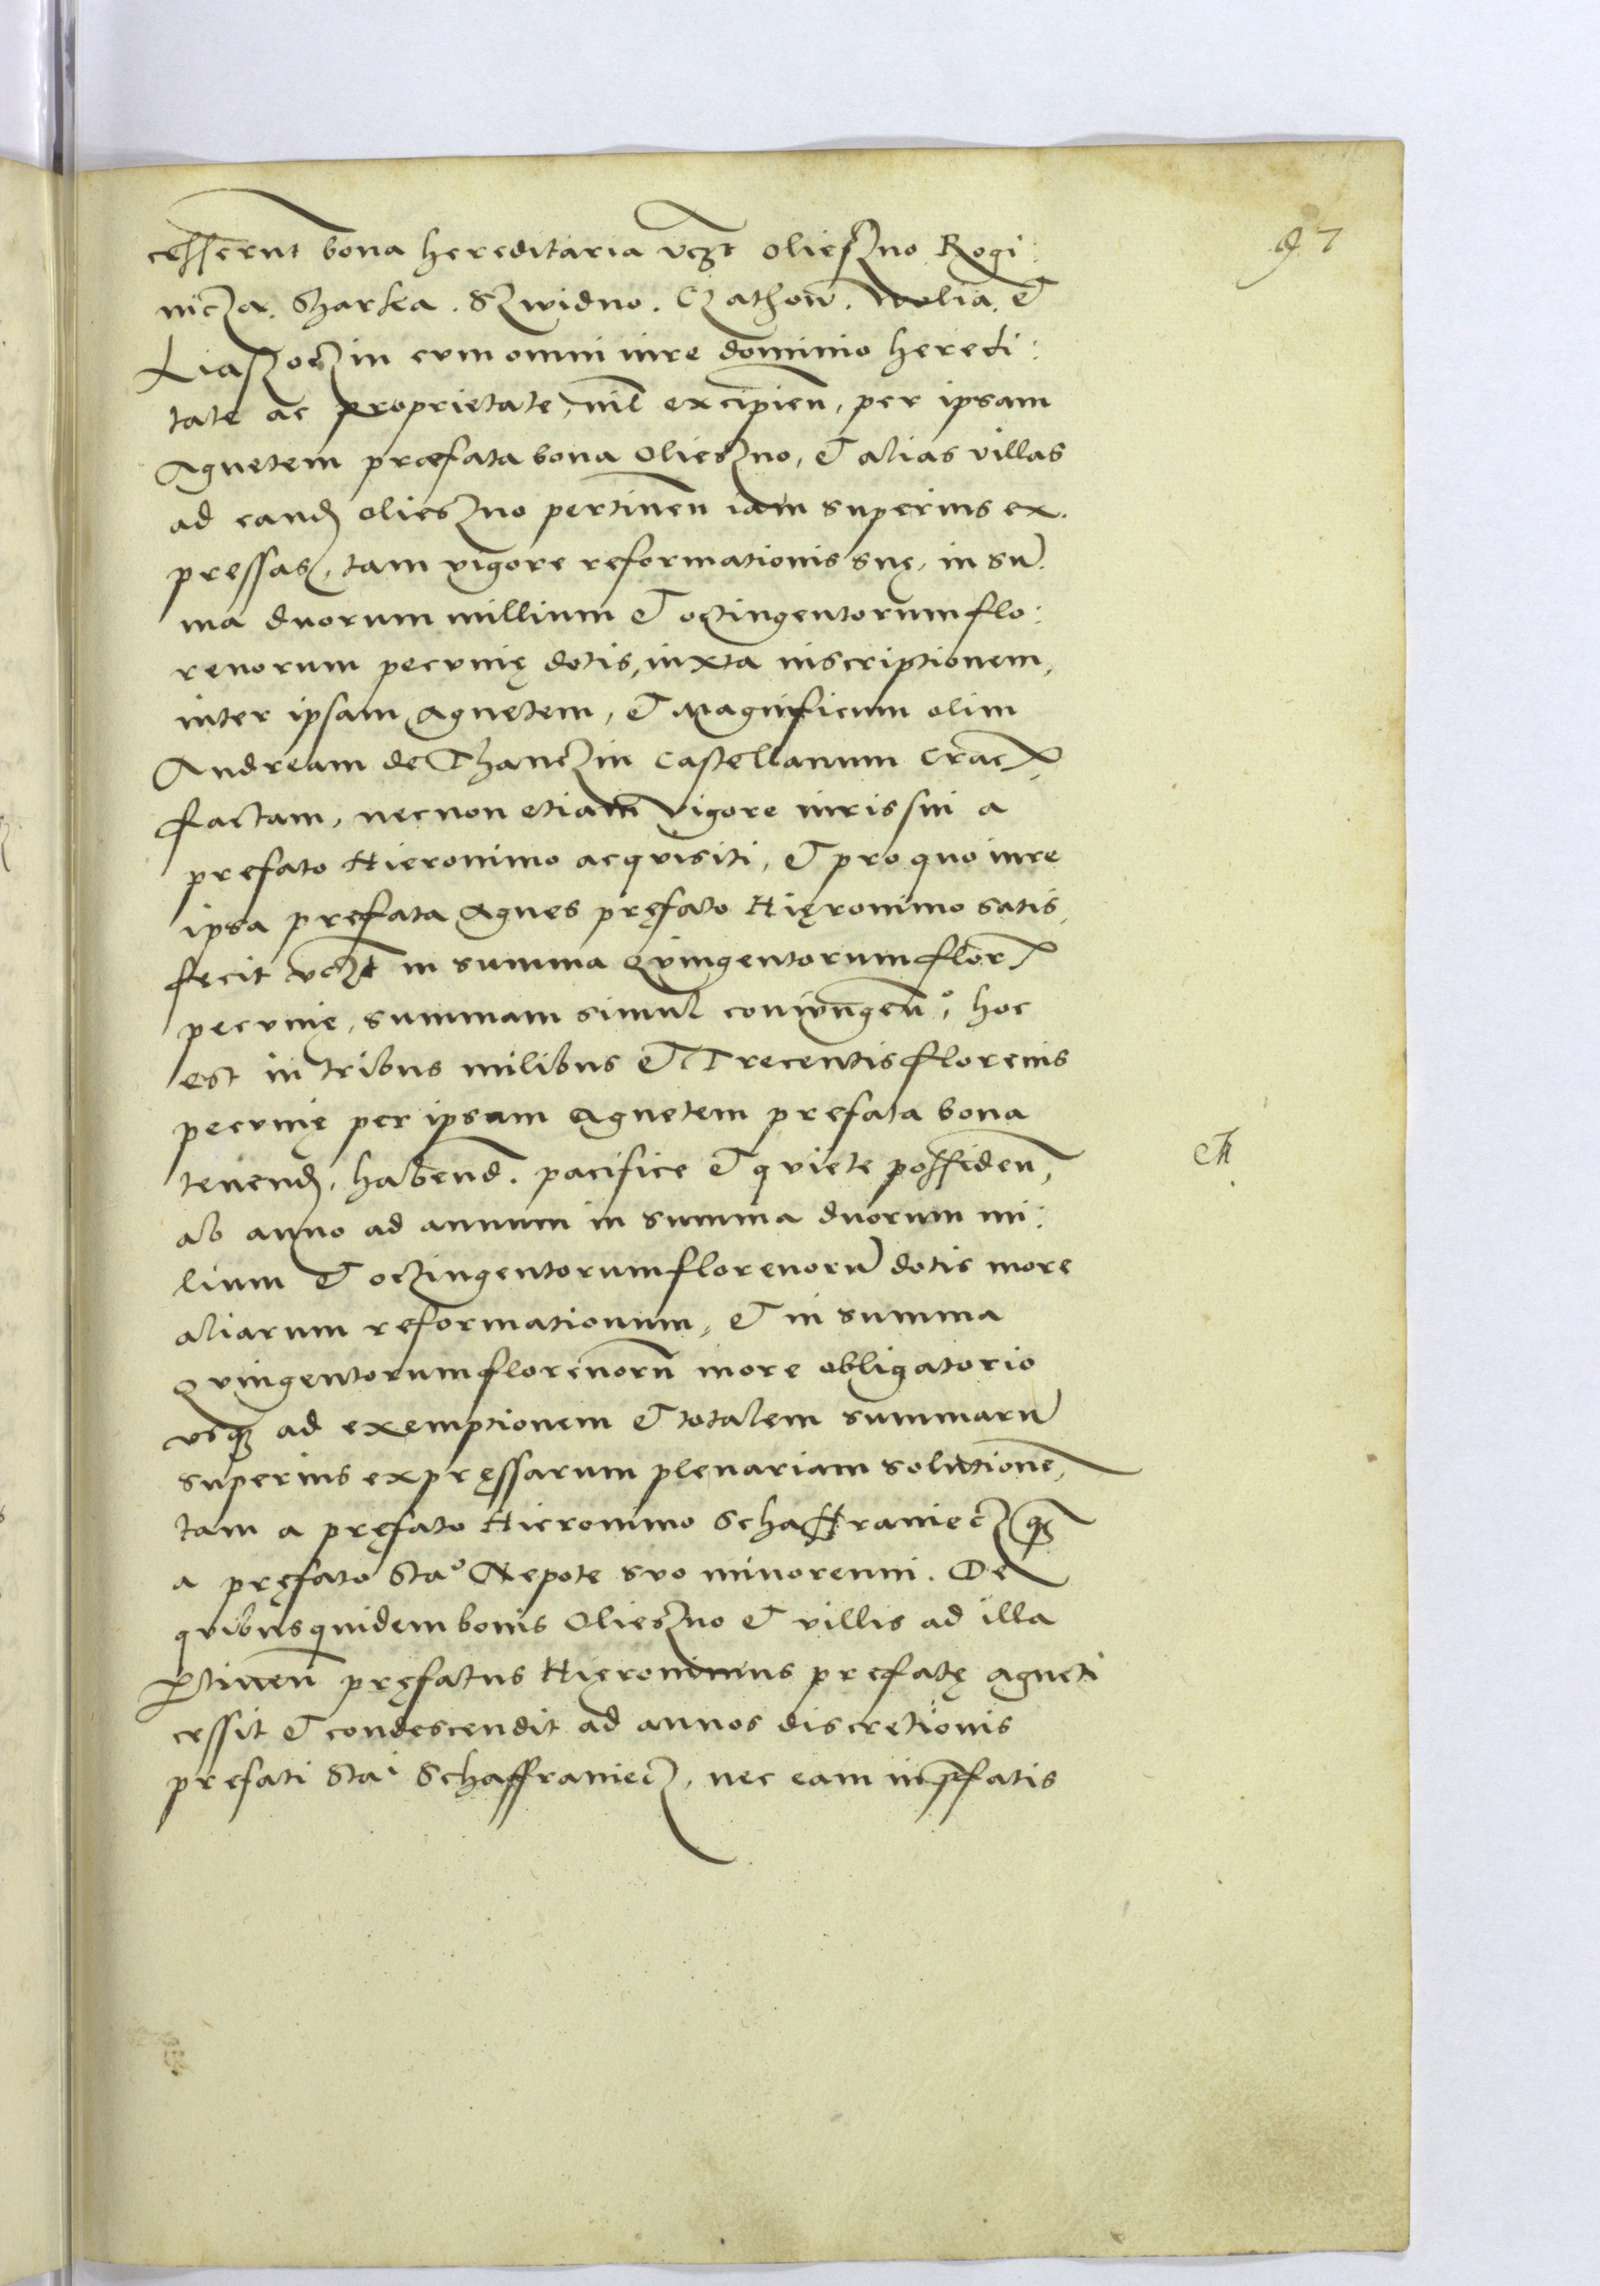 97
cesserunt bona hereditaria vczt Olieszno Rogi:
nicza. Sharka. Szwidno. Czathow. Wolia. et
Liaszoczin cum omni iure dominio heredi:
tate ac proprietate, nil excipien, per ipsam
Agnetem præfata bona Olieszno, et alias villas
ad eand Olieszno pertinen iam superius ex.
pressas, tam vigore reformationis suę, in sū
ma duorum millium et octingentorum flo:
renorum pecunię dotis, iuxta inscriptionem,
inter ipsam Agnetem, et Magnificum olim
Andream de Thanczin Castellanum Crac
factam, necnon etiam vigore iuris sui a
prefato Hieronimo acquisiti, et pro quo iure
ipsa prefata Agnes pręfato Hięronimo satis
fecit vczt in summa Quingentorum flor
pecunię, summam simul coniungen°, hoc
est in tribus milibus et Trecentis florenis
pecunię per ipsam Agnetem prefata bona
tenend, habend. pacifice et quiete possiden,
ab anno ad annum in summa duorum mi:
lium et octingentorum florenorū dotis more
aliarum reformationum, et in summa
Quingentorum florenorū more obligatorio
vsq ad exemptionem et totalem summarū
superius expręssarum plenariam solutionē,
tam a pręfato Hieronimo Schaffraniecz q̄
a pręfato Sta° Nepote suo minorenni. De
quibus quidem bonis Olieszno et villis ad illa
ptinen pręfatus Hięronimus prefatę Agneti
cessit et condescendit ad annos discretionis
prefati Staⁱ Schaffraniecz, nec eam in pfatis